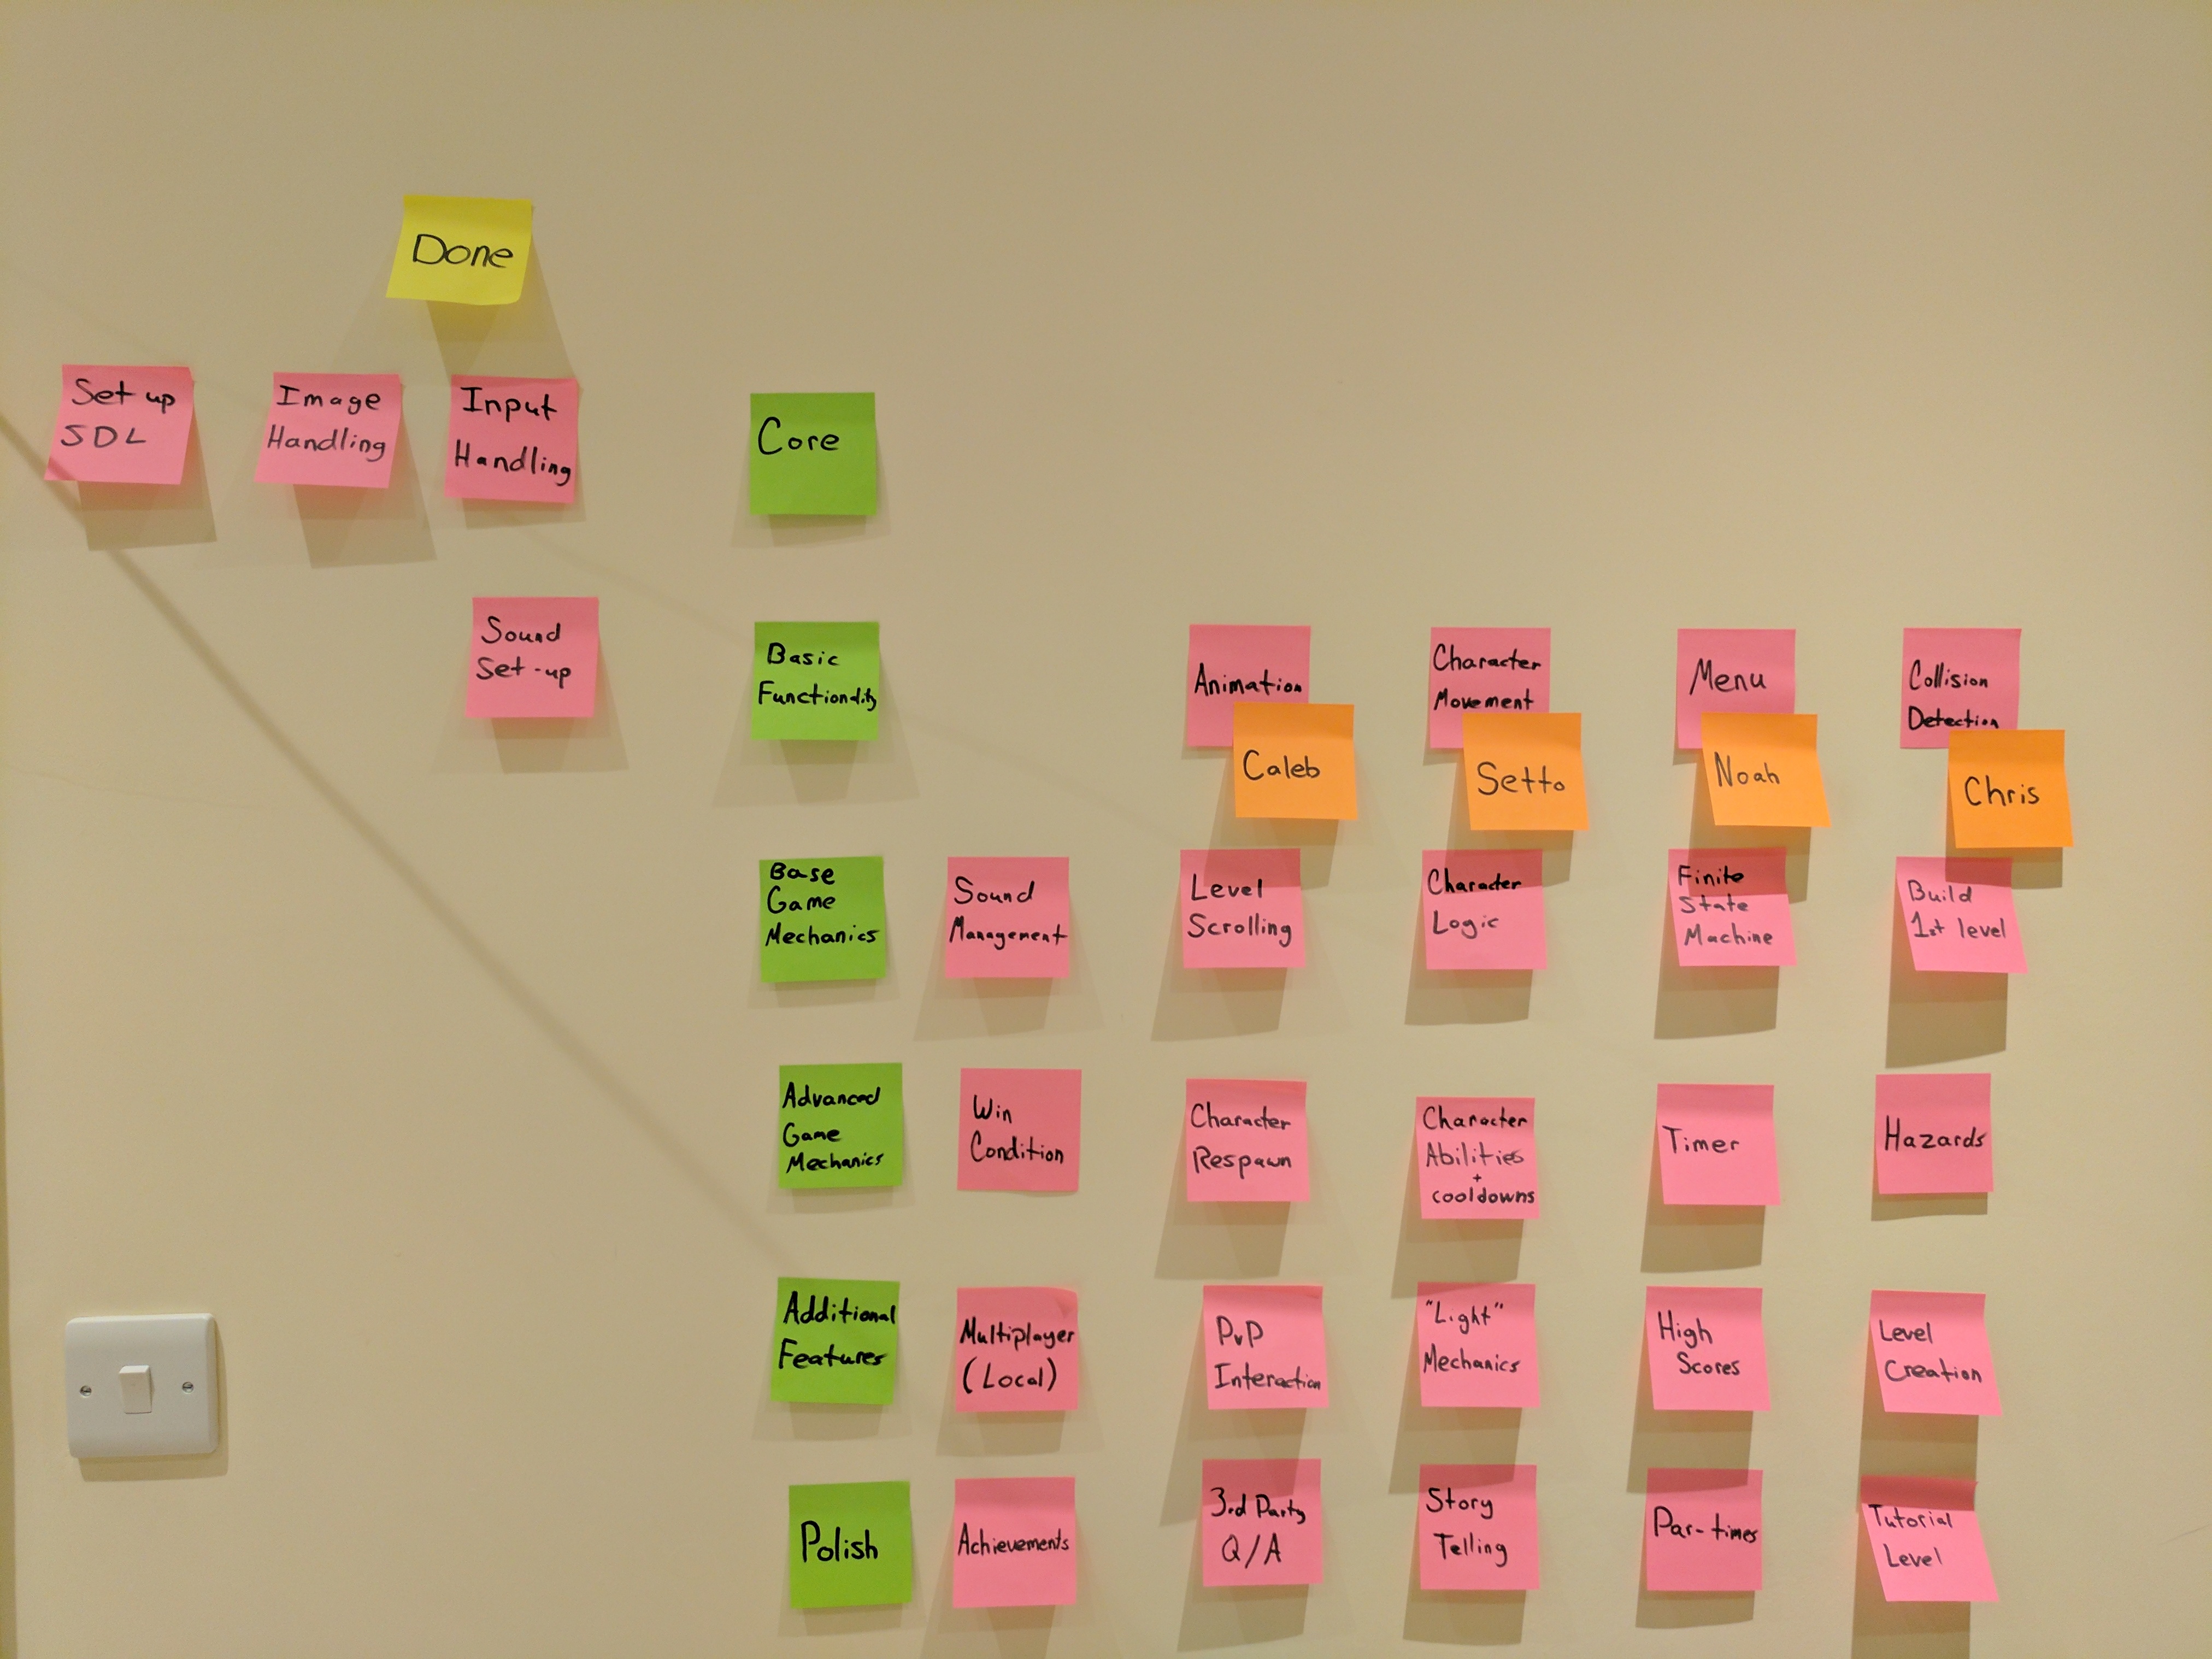 Done
Set up
SDL
Image
Handling
Input
Handling
Core
Sound
Set-up
Basic
Functionality
Animation
Caleb
Character
Movement
Setto
Menu
Noah
Collision
Detection
Chris
Base
Game
Mechanics
Sound
Management
Level
Scrolling
Character
Logic
Finite
State
Machine
Build
1st level
Advanced
Game
Mechanics
Win
Condition
Character
Respawn
Character
Abilities
+
cooldowns
Timer
Hazards
Additional
Features
Multiplayer
(Local)
PvP
Interaction
"Light"
Mechanics
High
Scores
Level
Creation
Polish
Achievements
3rd Party
Q/A
Story
Telling
Par-times
Tutorial
Level